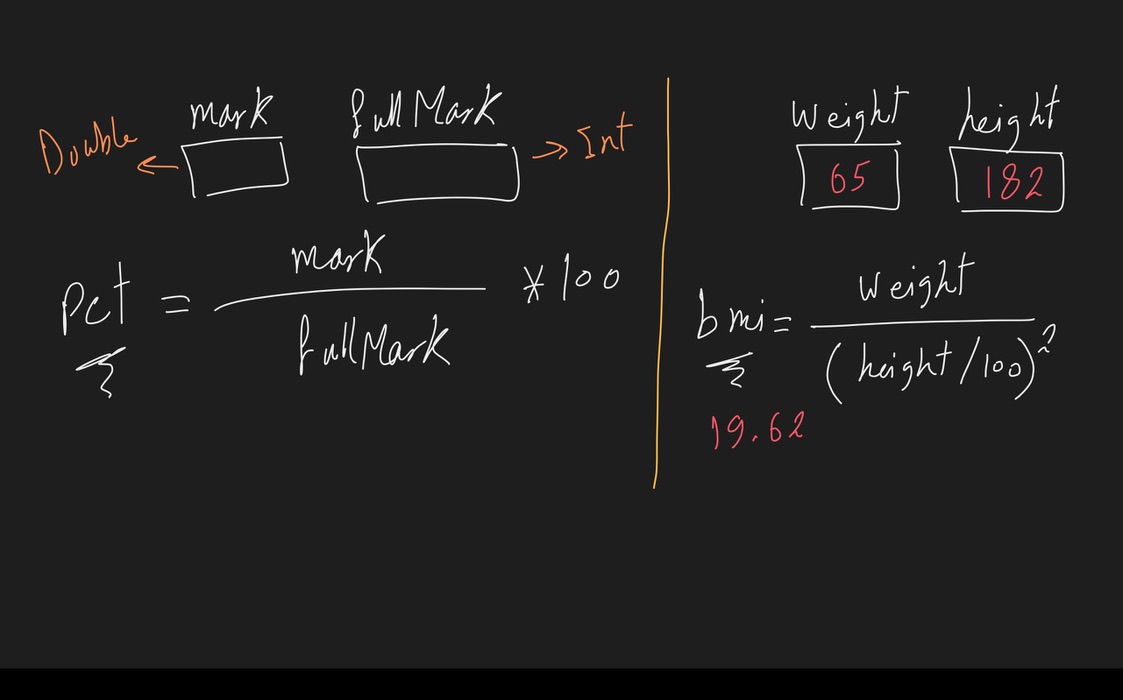 mark fullMark
Double ← → Int
Pct = mark / fullMark * 100
weight height
65 182
bmi = weight / (height/100)²
19.62